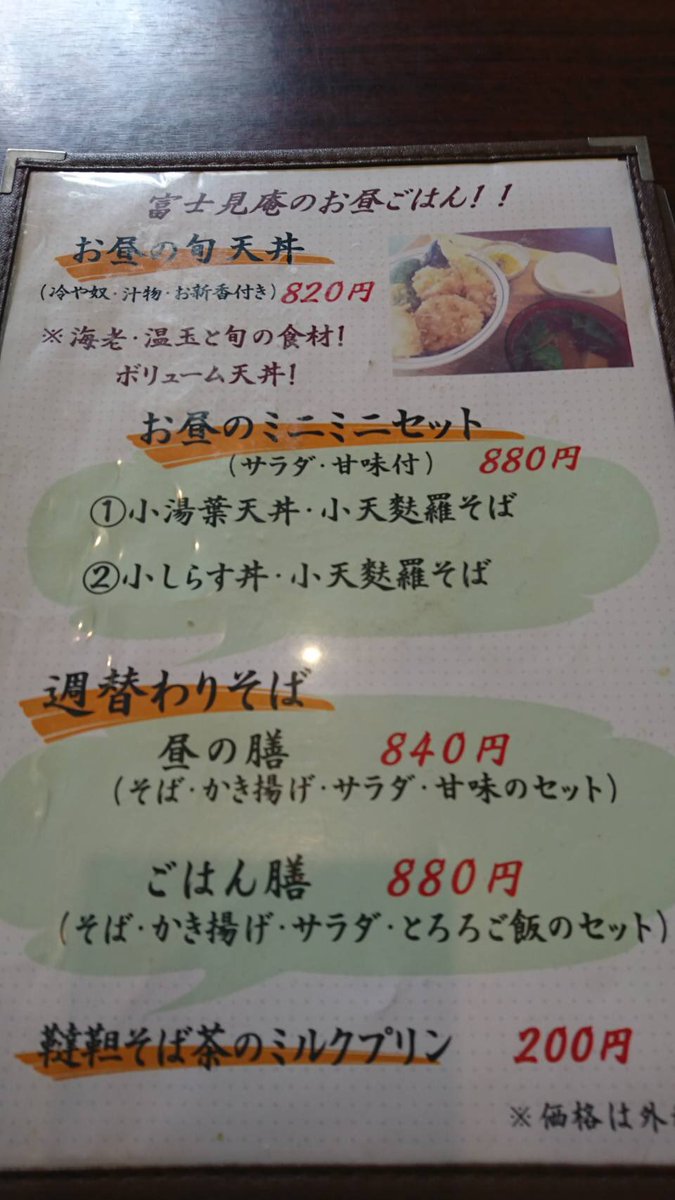 富士見庵のお昼ごはん！！
お昼の旬天丼
（冷や奴・汁物・お新香付き）820円
※海老・温玉と旬の食材！
ボリューム天丼！
お昼のミニミニセット
（サラダ・甘味付） 880円
①小湯葉天丼・小天麩羅そば
②小しらす丼・小天麩羅そば
週替わりそば
昼の膳 840円
（そば・かき揚げ・サラダ・甘味のセット）
ごはん膳 880円
（そば・かき揚げ・サラダ・とろろご飯のセット）
韃靼そば茶のミルクプリン 200円
※価格は外